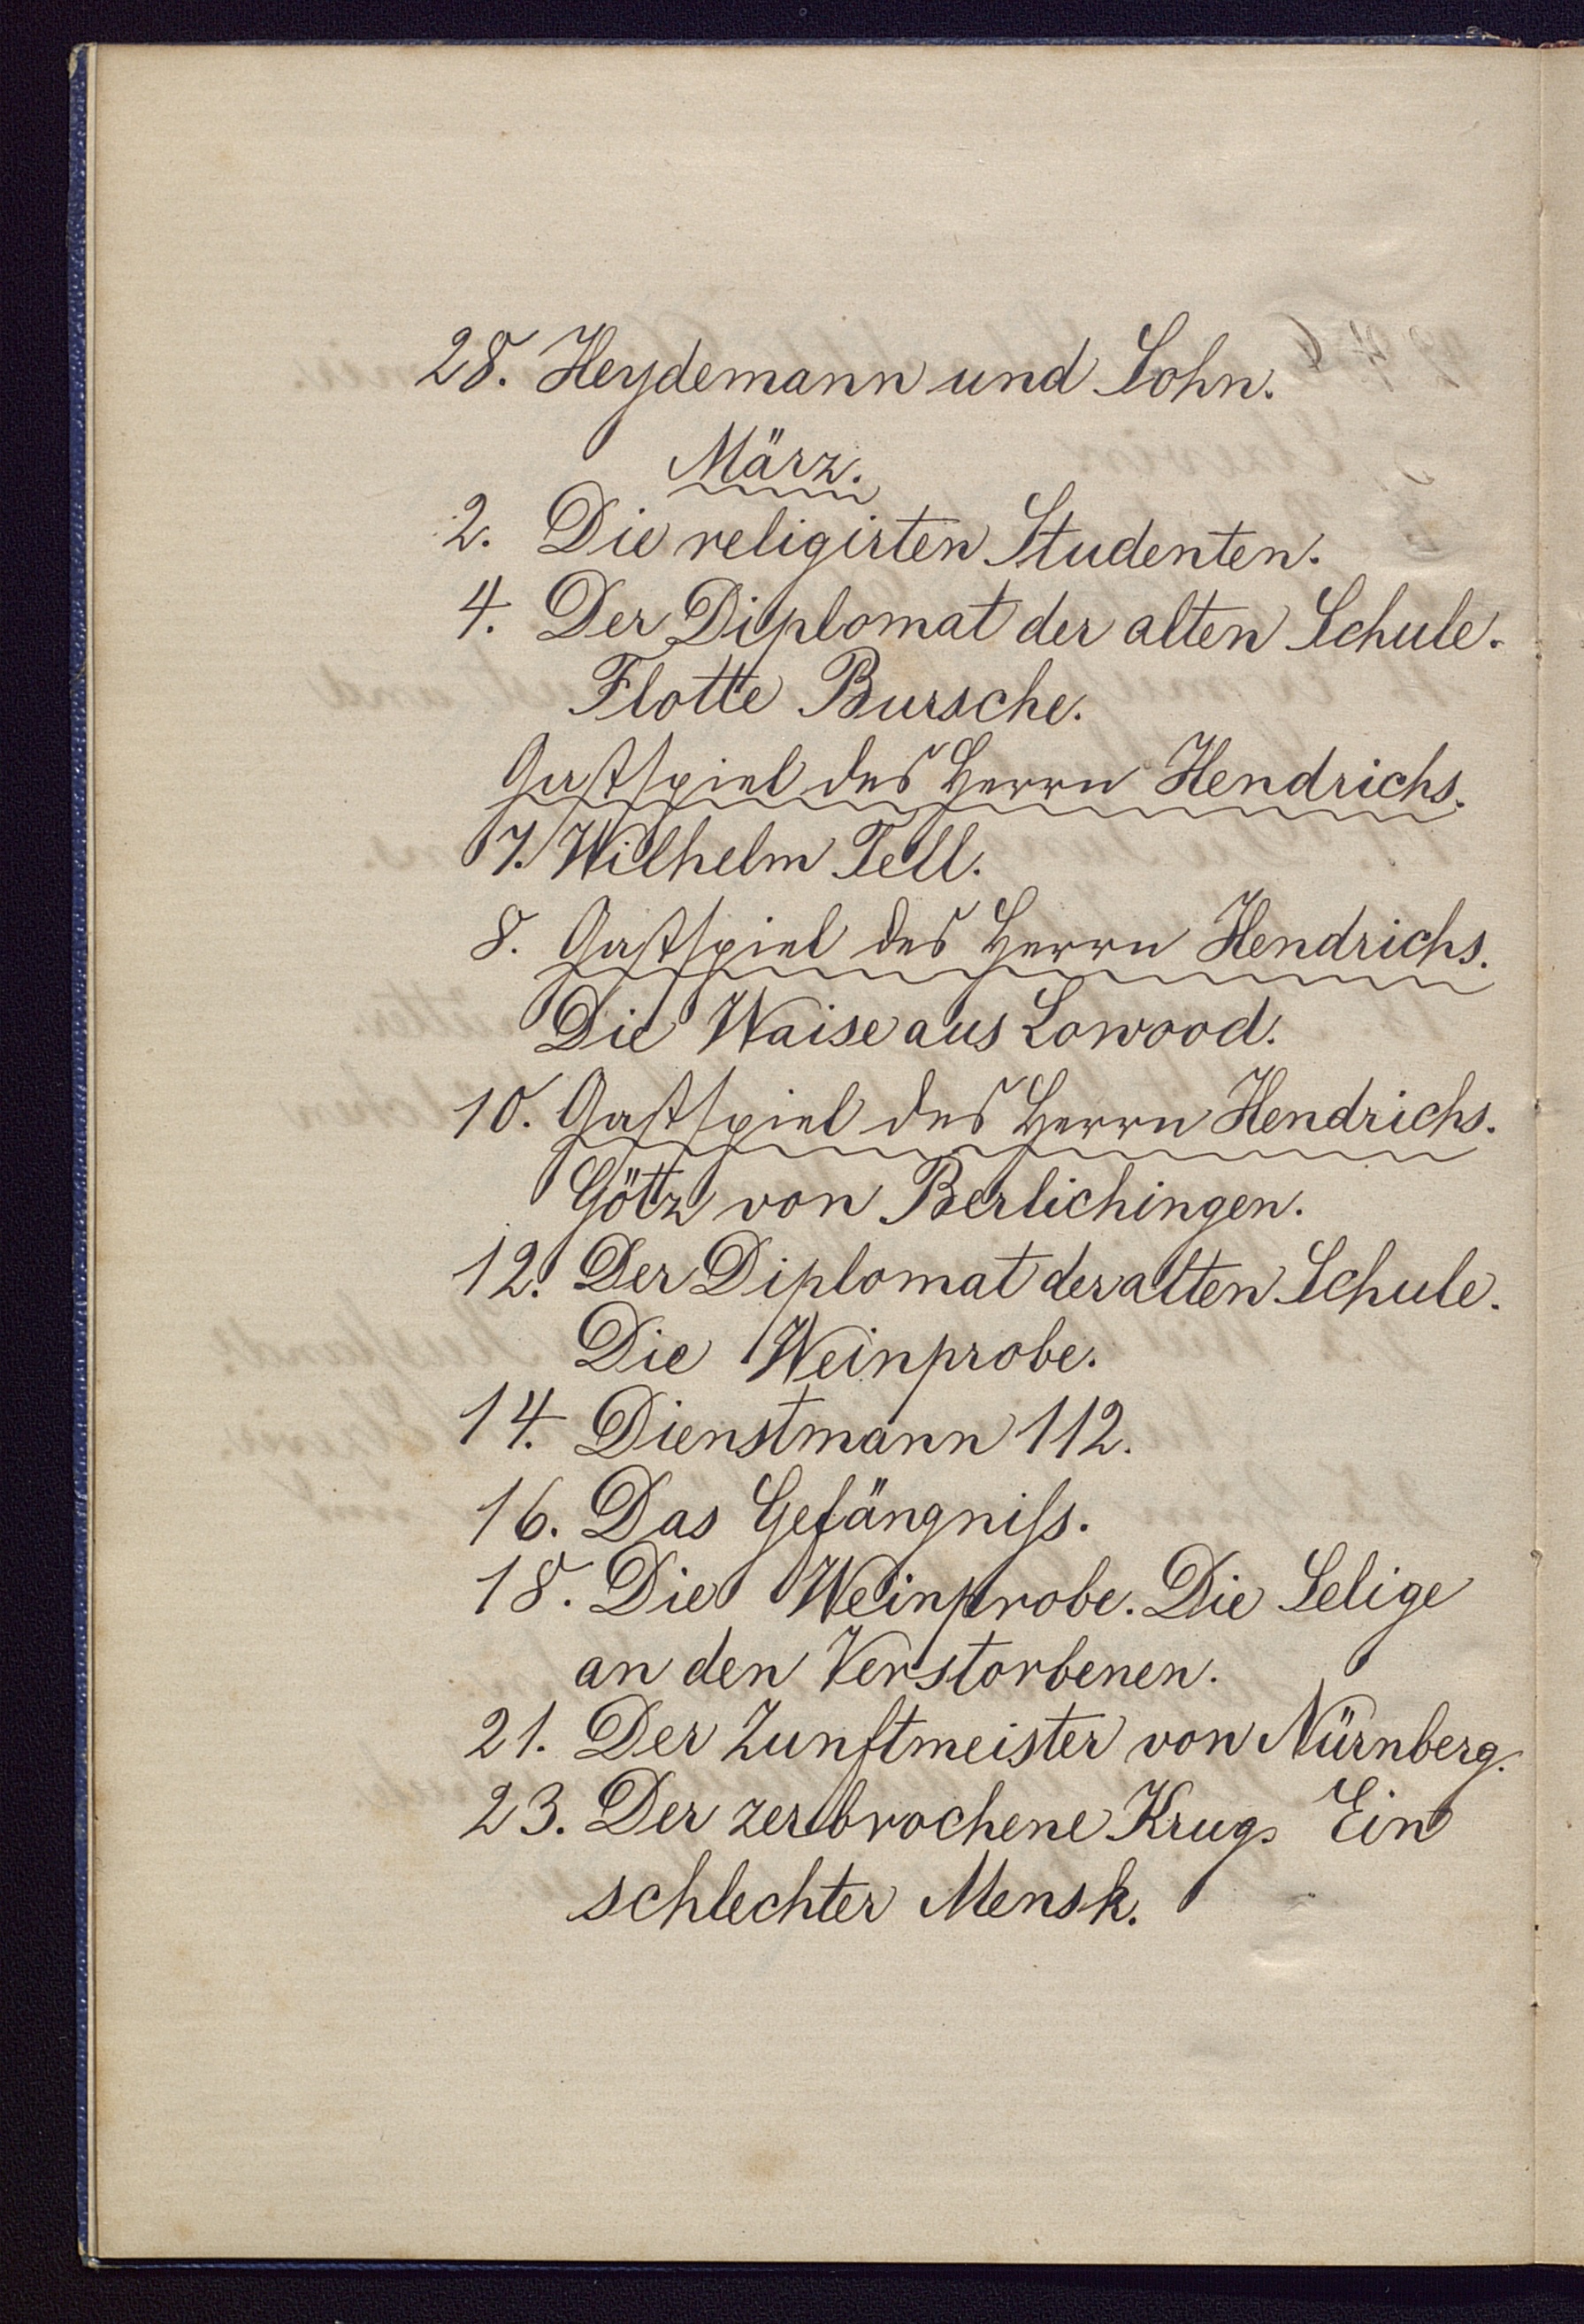 28. Heydemann und Sohn.
März.
2. Die religirten Studenten.
4. Der Diplomat der alten Schule.
Flotte Bursche.
Gastspiel des Herrn Hendrichs.
7. Wilhelm Tell.
8. Gastspiel des Herrn Hendrichs.
Die Waise aus Lowood.
10. Gastspiel des Herrn Hendrichs.
Götz von Berlichingen.
12. Der Diplomat der alten Schule.
Die Weinprobe.
14. Dienstmann 112.
16. Das Gefängniſs.
18. Die Weinprobe. Die Selige
an den Verstorbenen.
21. Der Zunftmeister von Nürnberg.
23. Der zerbrochene Krug. Ein
schlechter Mensk.